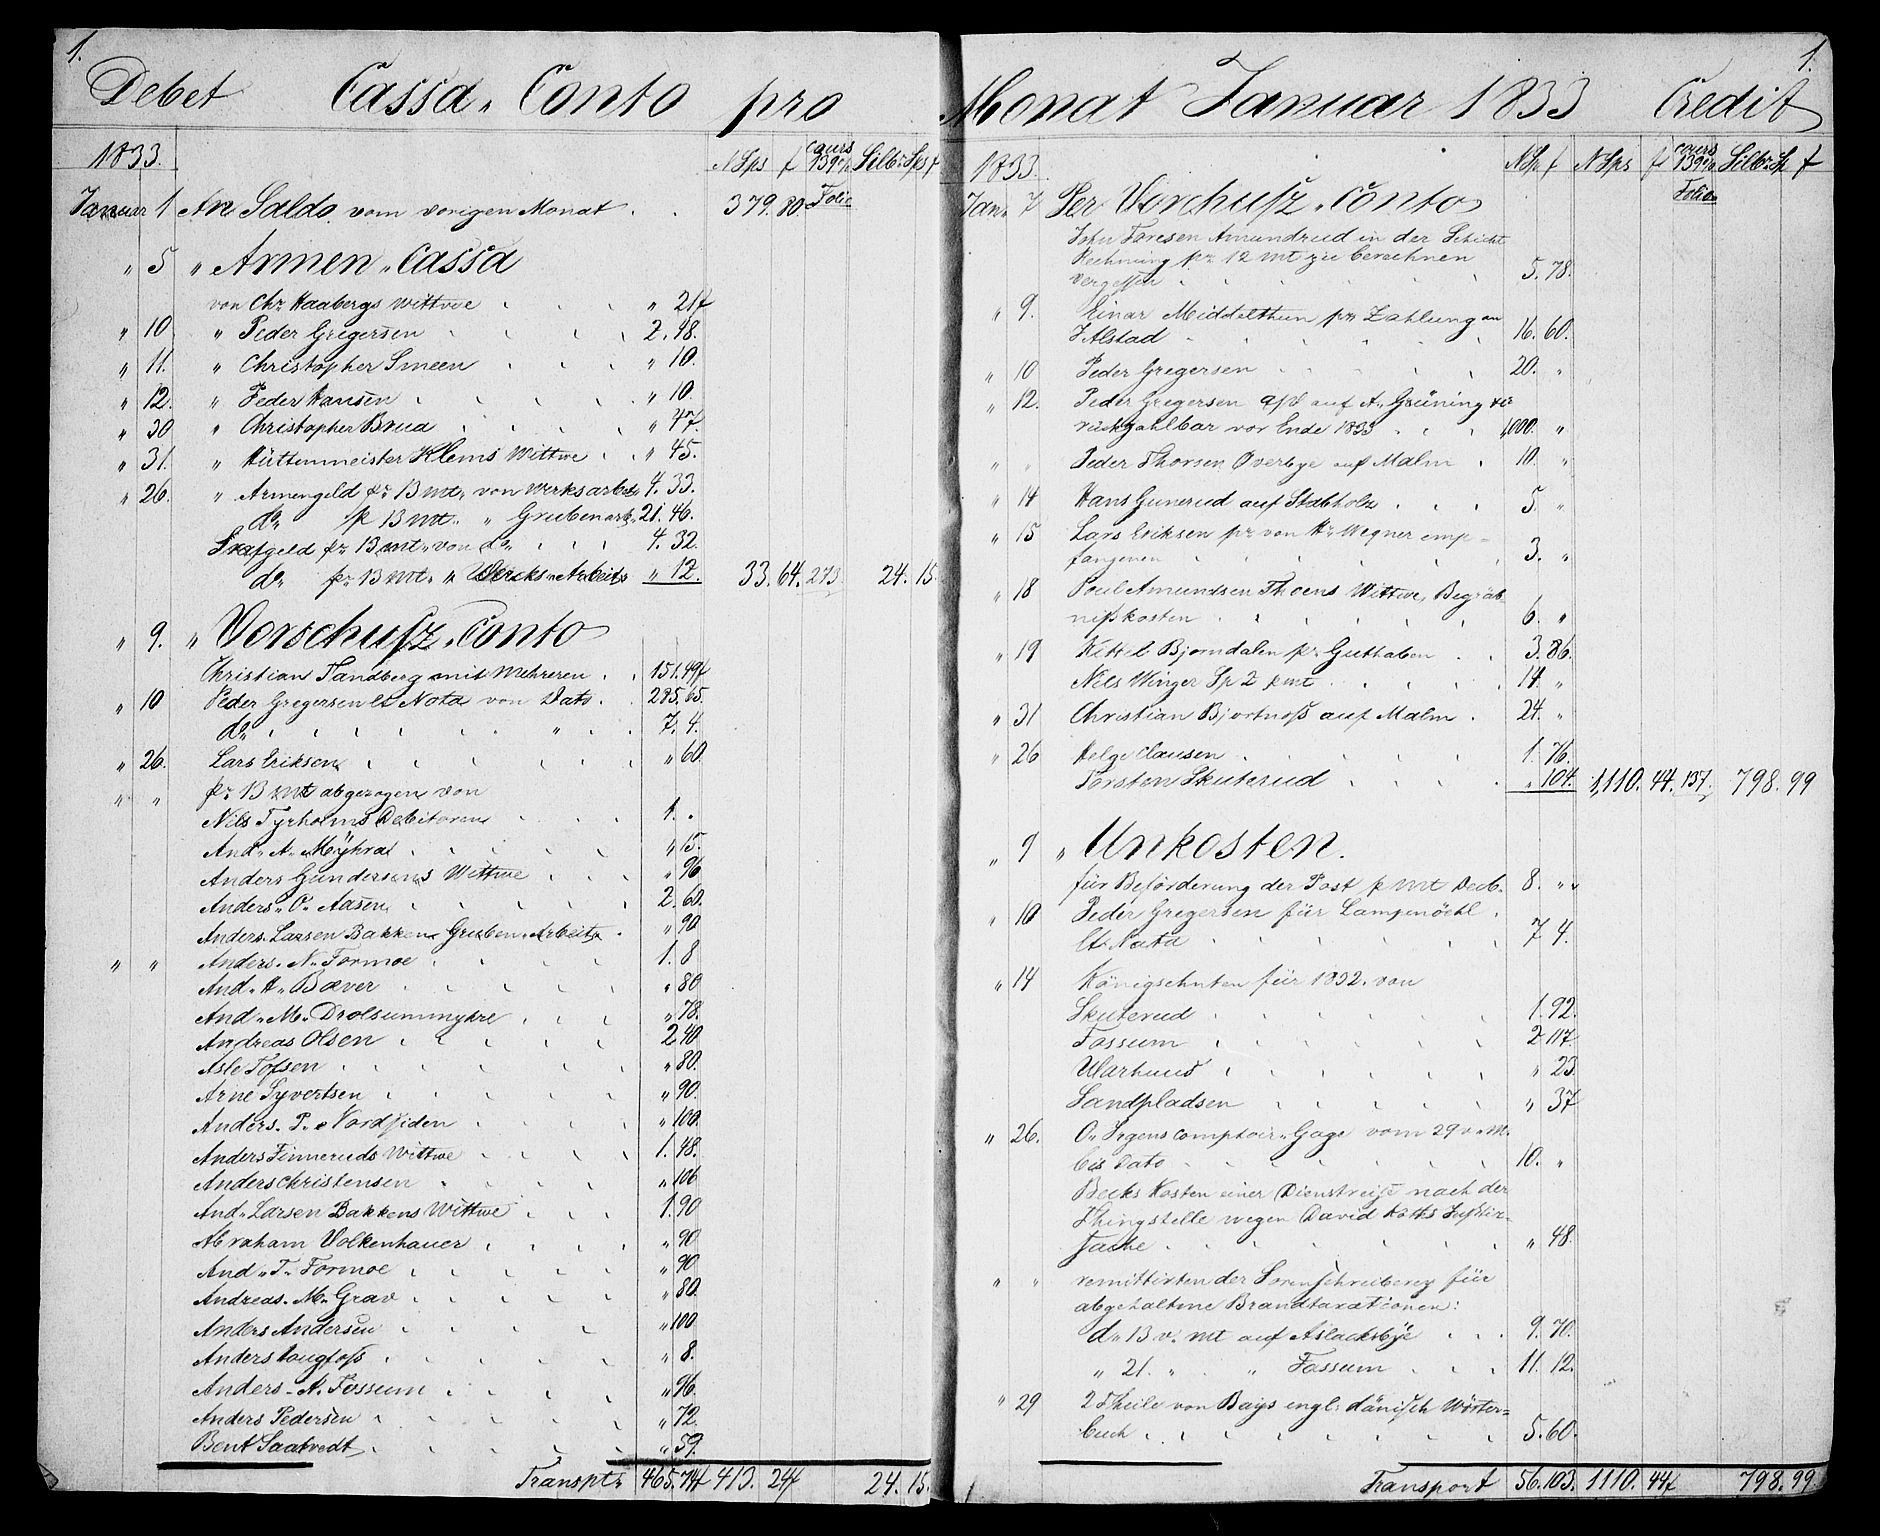 1.
Debet Cassa-Conto pro
1833. NSps f cours 139% Silb: Sps f
Januar 1 An Saldo vom vorigen Monat . . 379. 80 Folio
" 5 " Armen-Cassa
von Chr Haabergs Wittwe " 21f
" 10. " Peder Gregersen 2. 48.
" 11. " Christopher Smeen " 10.
" 12. " Peder Hansen " 10.
" 30 " Christopher Brua " 47.
" 31. " Hüttenmeister Klems Wittwe " 45.
" 26. " Armengeld pr 13 mt. von Werksarbtr 4. 33.
do p 13 mt. " Grubenarb. 21. 46.
Strafgeld pr 13 mt. von do 4. 32.
do pr 13 mt. " Wercks-Arbeitr " 12. 33. 64. 273. 24. 15.
" 9. " Vorschusz-Conto
Christian Sandberg mit Mehreren 151. 49f
" 10 Peder Gregersen lt Nota von Dato 285. 65.
do " 7. 4.
" 26. Lars Eriksen " 60
" " pr 13 mt abgezogen von
Nils Tyrholms Debitoren 1. .
And. A. Möhra " 15.
Anders Gundersens Wittwe " 96
Anders. O. Aasen 2. 60.
Anders. Larsen Bakken Gruben-Arbeitr " 90
" " Anders. N. Formoe 1. 8
And. H. Bæver " 80
And. M. Drolsummyhre " 78.
Andreas Olsen 2 40
Asle Tofsen " 80.
Arne Syvertsen " 90.
Anders. P. Nordsiden " 100.
Anders Finneruds Wittwe 1. 48.
Anders Christensen " 106
And. Larsen Bakkens Wittwe 1. 90
Abraham Volkenhauer " 90
And. T. Formoe " 90
Andreas. M. Grav " 80.
Anders Andersen " 100
Anders Kongfoss " 8.
Anders. A. Fossum " 96.
Anders Pedersen " 72.
Bent Saatvedt " 59.
Transptr 465. 74f 413. 24f 24. 15.
1.
Monat Januar 1833 Credit
1833. NSp f NSps f cours 139% Silb: Sp f
Jan. 7 Per Vorschusz-Conto Folio
John Toresen Amundrud in der Schicht
Rechnung pr 12 mt zu berechnen
vergessen 5. 78.
" 9. Einar Middelthun pr Zahlung an
J Alstad 16. 60.
" 10 Peder Gregersen 20. "
" 12. Peder Gregersen a/d auf A. Grüning
rückzahlbar vor Ende 1833 1,000. "
" " Peder Thorsen Overbye auf Malm 10. "
" 14 Hans Gunerud auf Stabholz 5 "
" 15 Lars Eriksen pr von Hr Wegner emp=
fangenen 3. "
" 18 Poul Amundsen Thoens Wittwe, Begräb
nißkosten 6. "
" 19 Kittel Bjorndalen pr Guthaben 3. 86.
Nils Winger Sp 2 p mt 14. "
" 31 Christian Bjortnoss auf Malm 24. "
" 26 Helge Clausen 1. 76.
Torsten Skuterud " 104. 1,110. 44. 137. 798. 99
" 9 " Unkosten.
für Beförderung der Post p mt Decb. 8. "
" 10 Peder Gregersen für Lampenöehl
lt Nota 7 4.
" 14 Königzehnten für 1832. von
Skuterud 1. 92.
Fossum 2 117.
Ularhuus " 23
Sandpladsen " 37
" 26. O. Irgens Comptoir-Gage vom 29 v. M.
bis Dato 10. "
Becks Kosten einer Dienstreise nach der
Thingstelle wegen David Kotts Justiz-
sache " 48.
" " remittirten der Sorenschreiberey für
abgehaltene Brandtaxationen:
d. 13 v. mt auf Aslacksbye 9. 70.
" 21. " " Fossum 11. 12.
" 29 2 Theile von Bays engl: dänisch Wörter=
buch 5. 60.
Transport 56. 103. 1110. 44f 798. 99